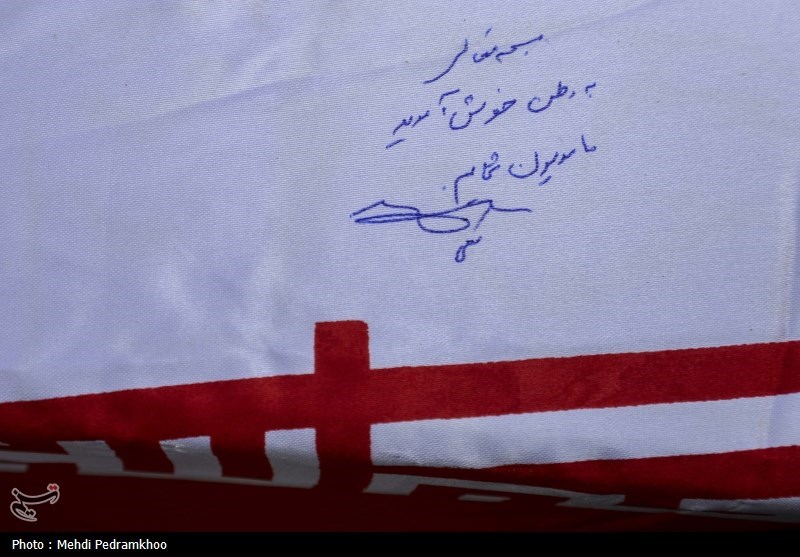 بسمه تعالی
به وطن خوش آمدید
ما مدیون شمائیم
Photo : Mehdi Pedramkhoo